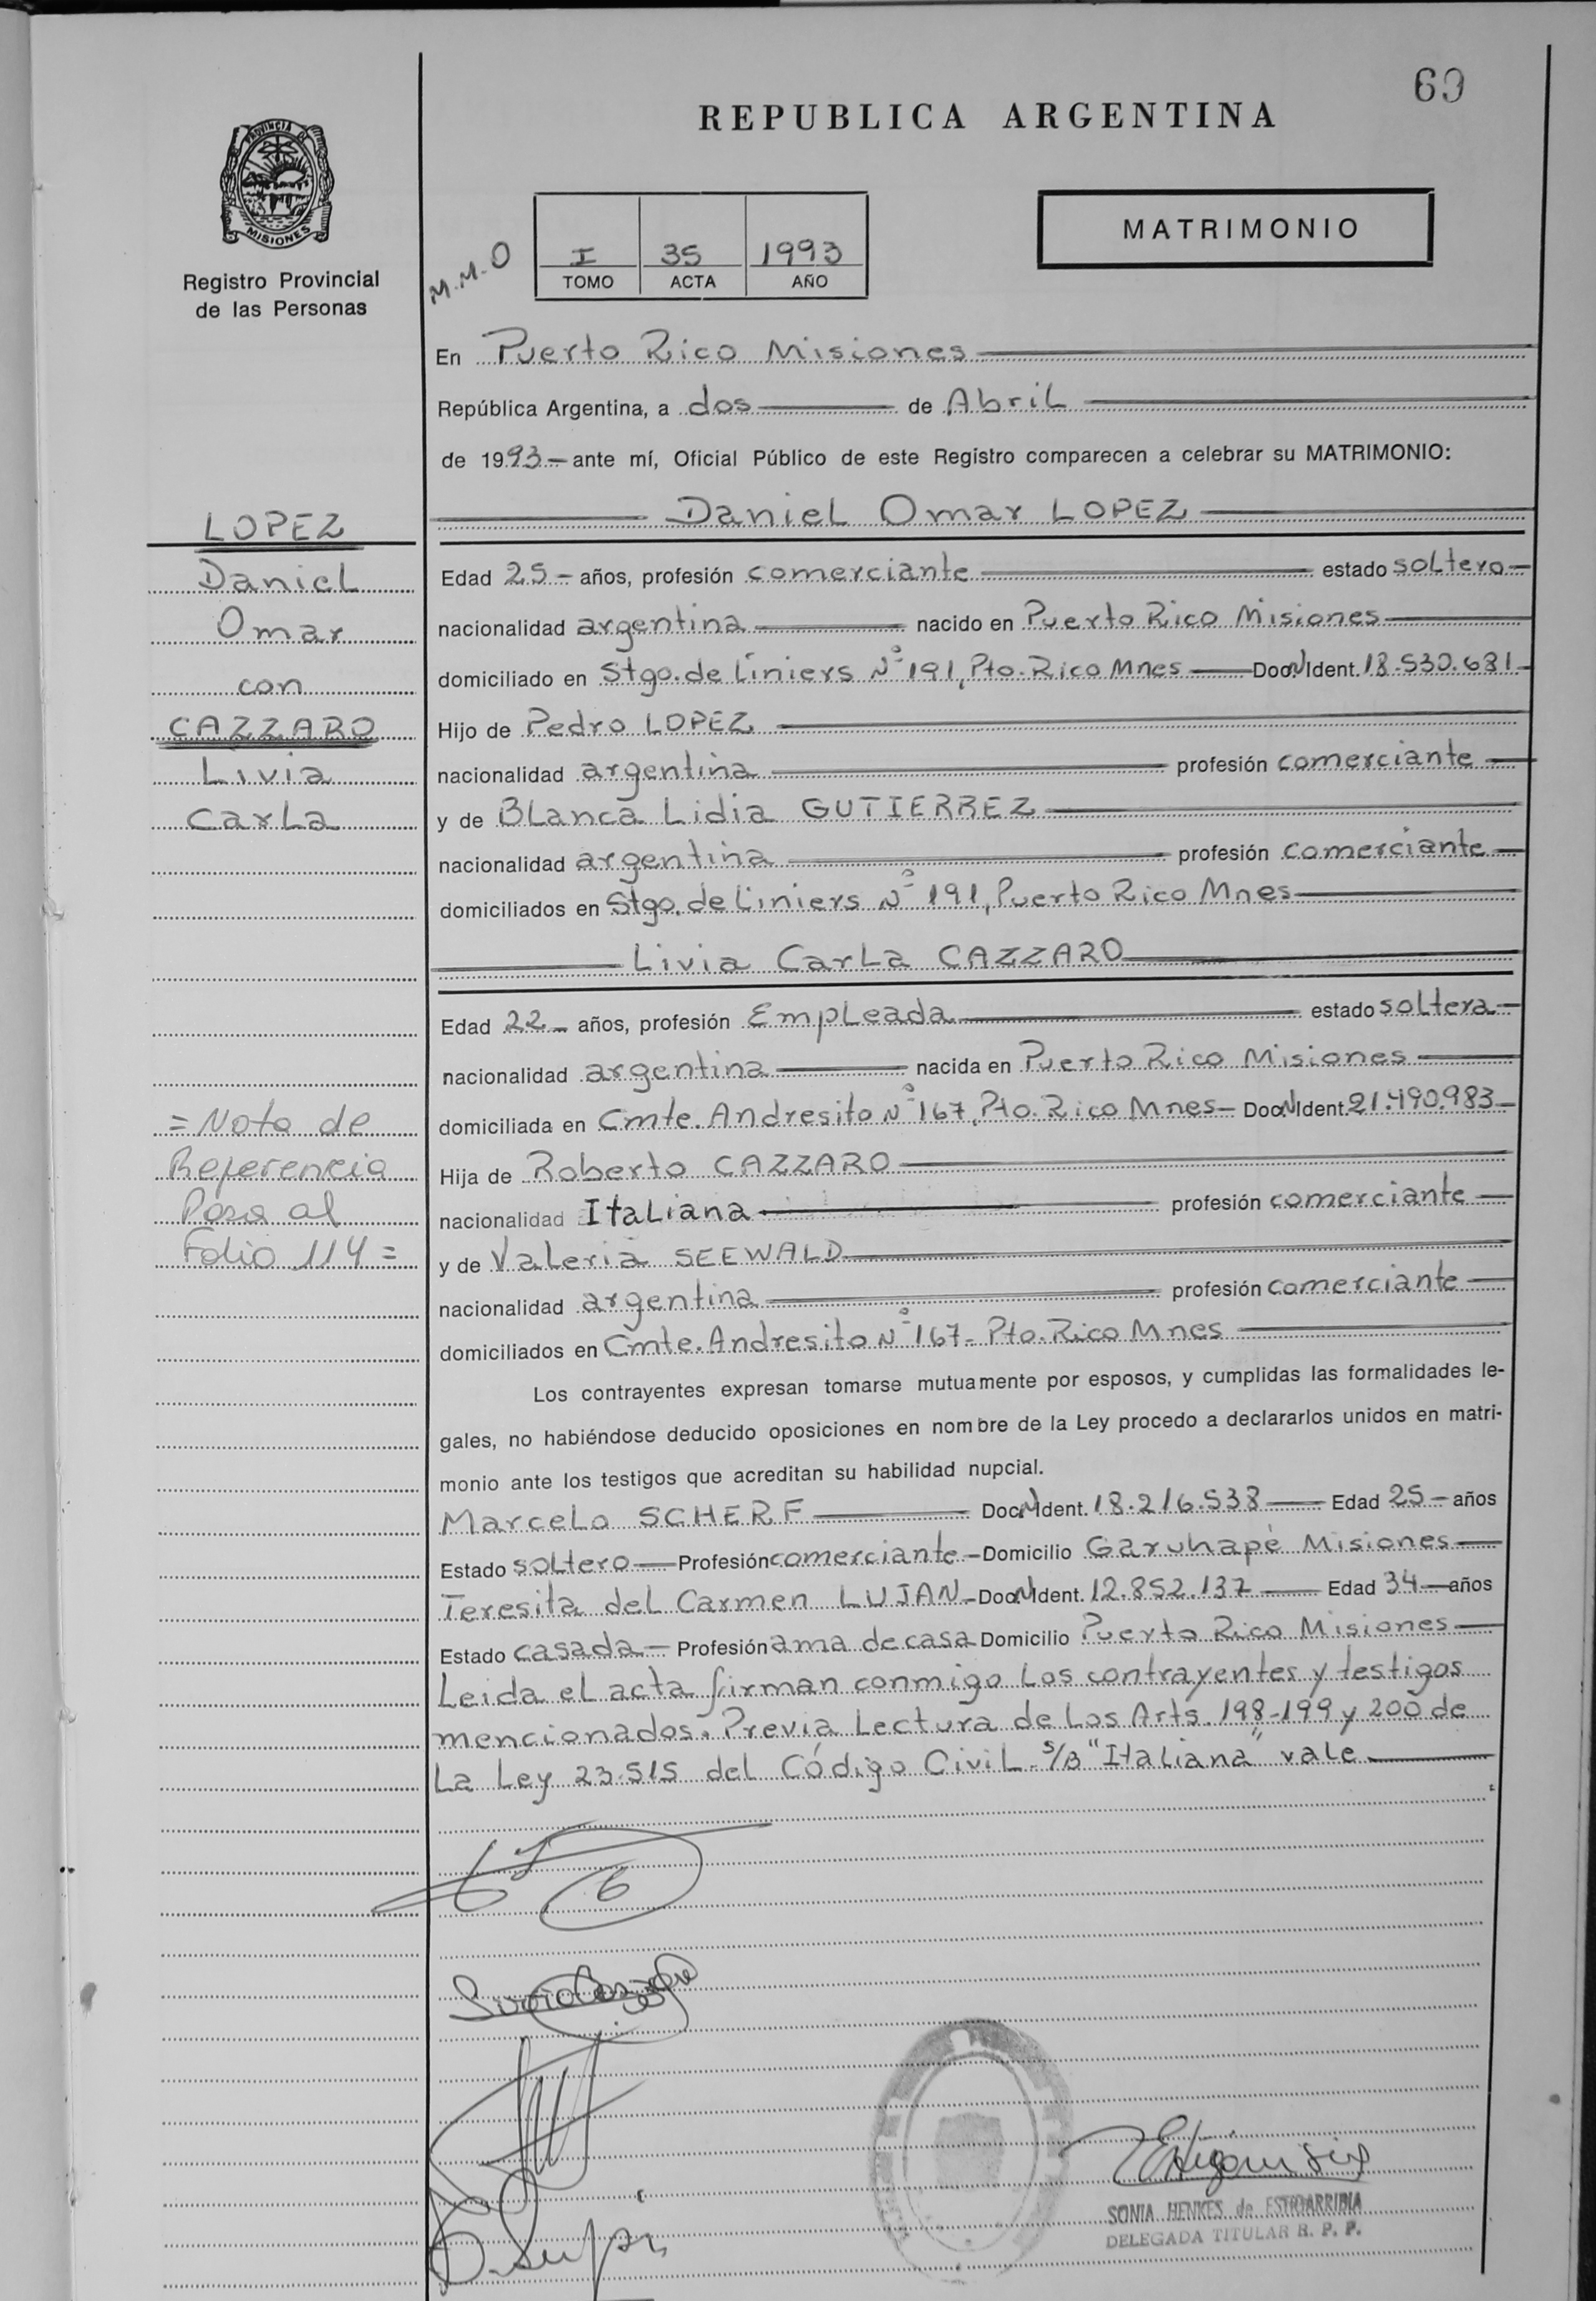 69
REPUBLICA ARGENTINA
PROVINCIA D
MISIONES
Registro Provincial
de las Personas
M.M.O
I 35 1993
TOMO ACTA AÑO
MATRIMONIO
En Puerto Rico Misiones
República Argentina, a dos de Abril
de 1993 ante mí, Oficial Público de este Registro comparecen a celebrar su MATRIMONIO:
LOPEZ
Daniel
Omar
con
CAZZARO
Livia
Carla
= Nota de
Referencia
Pasa al
Folio 114 =
Daniel Omar LOPEZ
Edad 25 años, profesión comerciante estado soltero
nacionalidad argentina nacido en Puerto Rico Misiones
domiciliado en Stgo. de Liniers Nº 191, Pto. Rico Mnes Doc. N Ident. 18.530.681
Hijo de Pedro LOPEZ
nacionalidad argentina profesión comerciante
y de Blanca Lidia GUTIERREZ
nacionalidad argentina profesión comerciante
domiciliados en Stgo. de Liniers Nº 191, Puerto Rico Mnes
Livia Carla CAZZARO
Edad 22 años, profesión Empleada estado soltera
nacionalidad argentina nacida en Puerto Rico Misiones
domiciliada en Cmte. Andresito Nº 167, Pto. Rico Mnes Doc. N Ident. 21.490.983
Hija de Roberto CAZZARO
nacionalidad Italiana profesión comerciante
y de Valeria SEEWALD
nacionalidad argentina profesión comerciante
domiciliados en Cmte. Andresito Nº 167- Pto. Rico Mnes
Los contrayentes expresan tomarse mutuamente por esposos, y cumplidas las formalidades le-
gales, no habiéndose deducido oposiciones en nombre de la Ley procedo a declararlos unidos en matri-
monio ante los testigos que acreditan su habilidad nupcial.
Marcelo SCHERF Doc. N Ident. 18.216.538 Edad 25 años
Estado soltero Profesión comerciante Domicilio Garuhapé Misiones
Teresita del Carmen LUJAN Doc. N Ident. 12.852.137 Edad 34 años
Estado casada Profesión ama de casa Domicilio Puerto Rico Misiones
Leida el acta firman conmigo los contrayentes y testigos
mencionados. Previa Lectura de los Arts. 198-199 y 200 de
La Ley 23.515 del Código Civil. s/B "Italiana" vale
SONIA HENKES de ESTIGARRIBIA
DELEGADA TITULAR R. P. P.